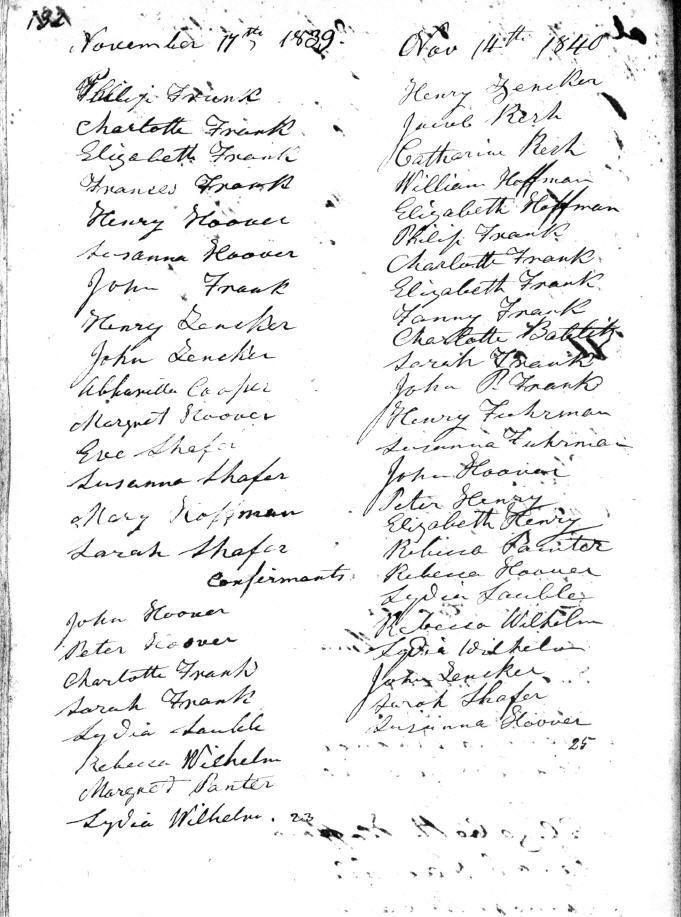 192
November 17th 1839.
Philip Frank
Charlotte Frank
Elizabeth Frank
Frances Frank
Henry Hoover
Susanna Hoover
John Frank
Henry Zencker
John Zencker
Cooper
Margret Hoover
Eve Shafer
Susanna Shafer
Mary Hoffman
Sarah Shafer
Confirmants
John Hoover
Peter Hoover
Charlotte Frank
Sarah Frank
Lydia Lauble
Rebecca Wilhelm
Margret Panter
Lydia Wilhelm. 23
Nov 14th 1840
Henry Zencker
Jacob Resh
Catharine Resh
William Hoffman
Elizabeth Hoffman
Philip Frank
Charlotte Frank
Elizabeth Frank
Fanny Frank
Charlotte
Sarah Frank
John P. Frank
Henry Fuhrman
Susanna Fuhrman
John Hoover
Peter Henry
Elizabeth Henry
Rebecca Painter
Rebecca Hoover
Lydia Laubler
Rebecca Wilhelm
Lydia Wilhelm
John Zencker
Sarah Shafer
Susanna Hoover
25